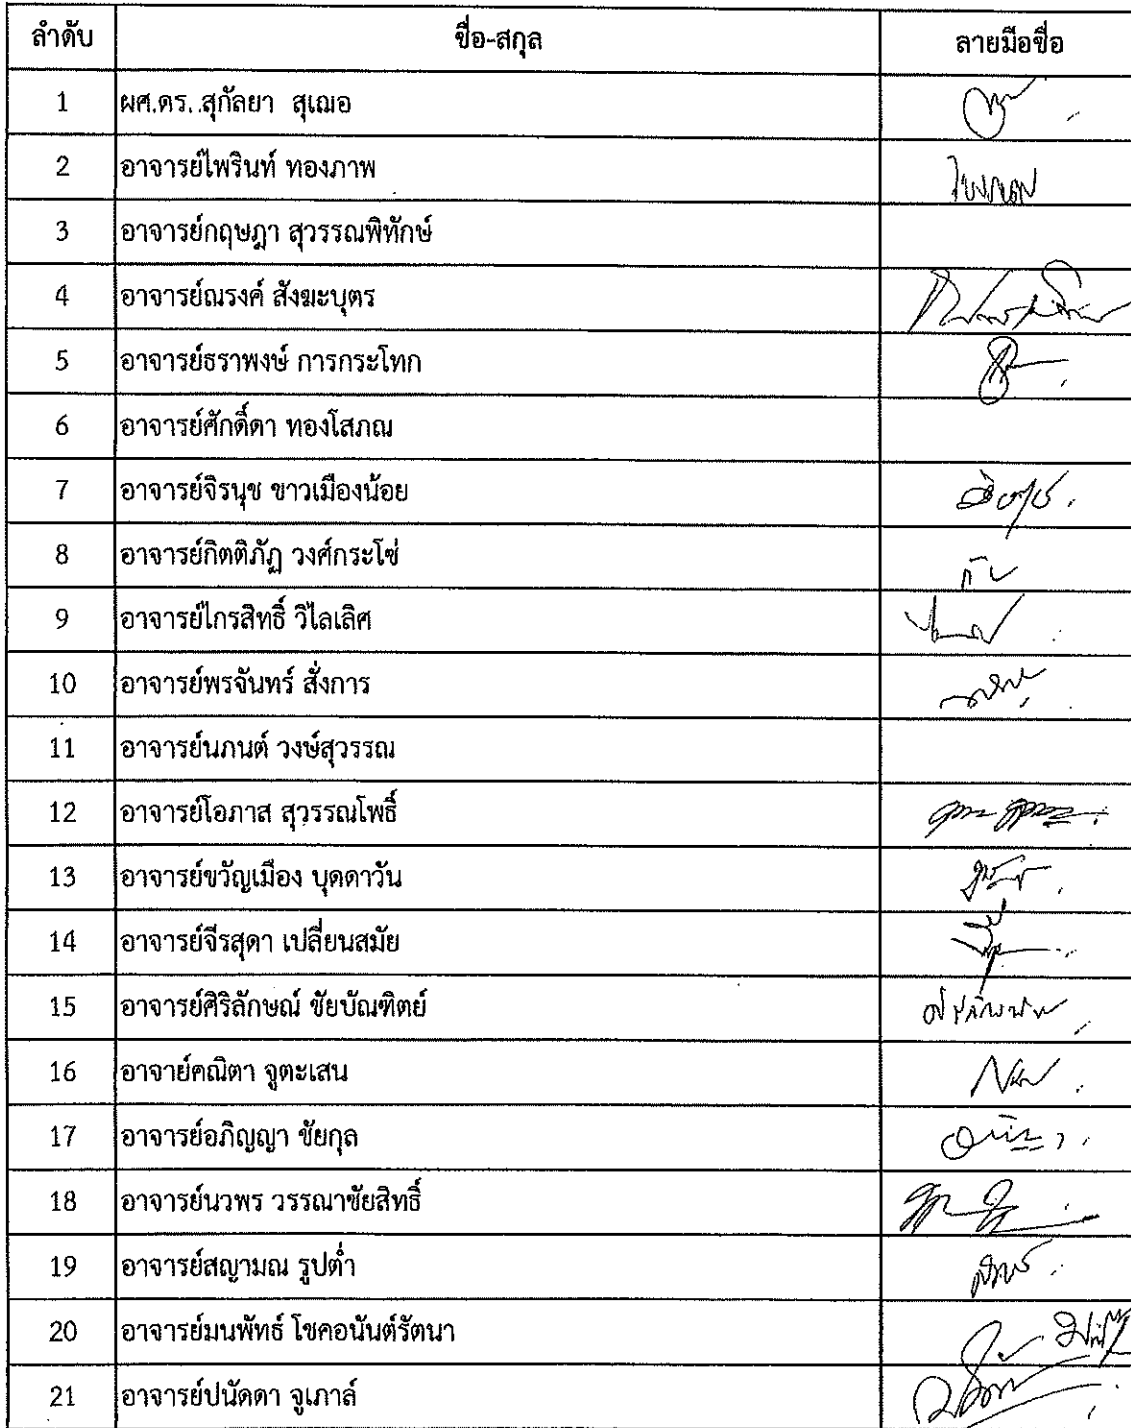 ลำดับ ชื่อ-สกุล ลายมือชื่อ
1 ผศ.ดร..สุกัลยา สุเฌอ
2 อาจารย์ไพรินท์ ทองภาพ
3 อาจารย์กฤษฎา สุวรรณพิทักษ์
4 อาจารย์ณรงค์ สังฆะบุตร
5 อาจารย์ธราพงษ์ การกระโทก
6 อาจารย์ศักดิ์ดา ทองโสภณ
7 อาจารย์จิรนุช ขาวเมืองน้อย
8 อาจารย์กิตติภัฏ วงศ์กระโซ่
9 อาจารย์ไกรสิทธิ์ วิไลเลิศ
10 อาจารย์พรจันทร์ สั่งการ
11 อาจารย์นภนต์ วงษ์สุวรรณ
12 อาจารย์โอภาส สุวรรณโพธิ์
13 อาจารย์ขวัญเมือง บุดดาวัน
14 อาจารย์จีรสุดา เปลี่ยนสมัย
15 อาจารย์ศิริลักษณ์ ชัยบัณฑิตย์
16 อาจาย์คณิตา จูตะเสน
17 อาจารย์อภิญญา ชัยกุล
18 อาจารย์นวพร วรรณาชัยสิทธิ์
19 อาจารย์สญามณ รูปต่ำ
20 อาจารย์มนพัทธ์ โชคอนันต์รัตนา
21 อาจารย์ปนัดดา จูเภาล์